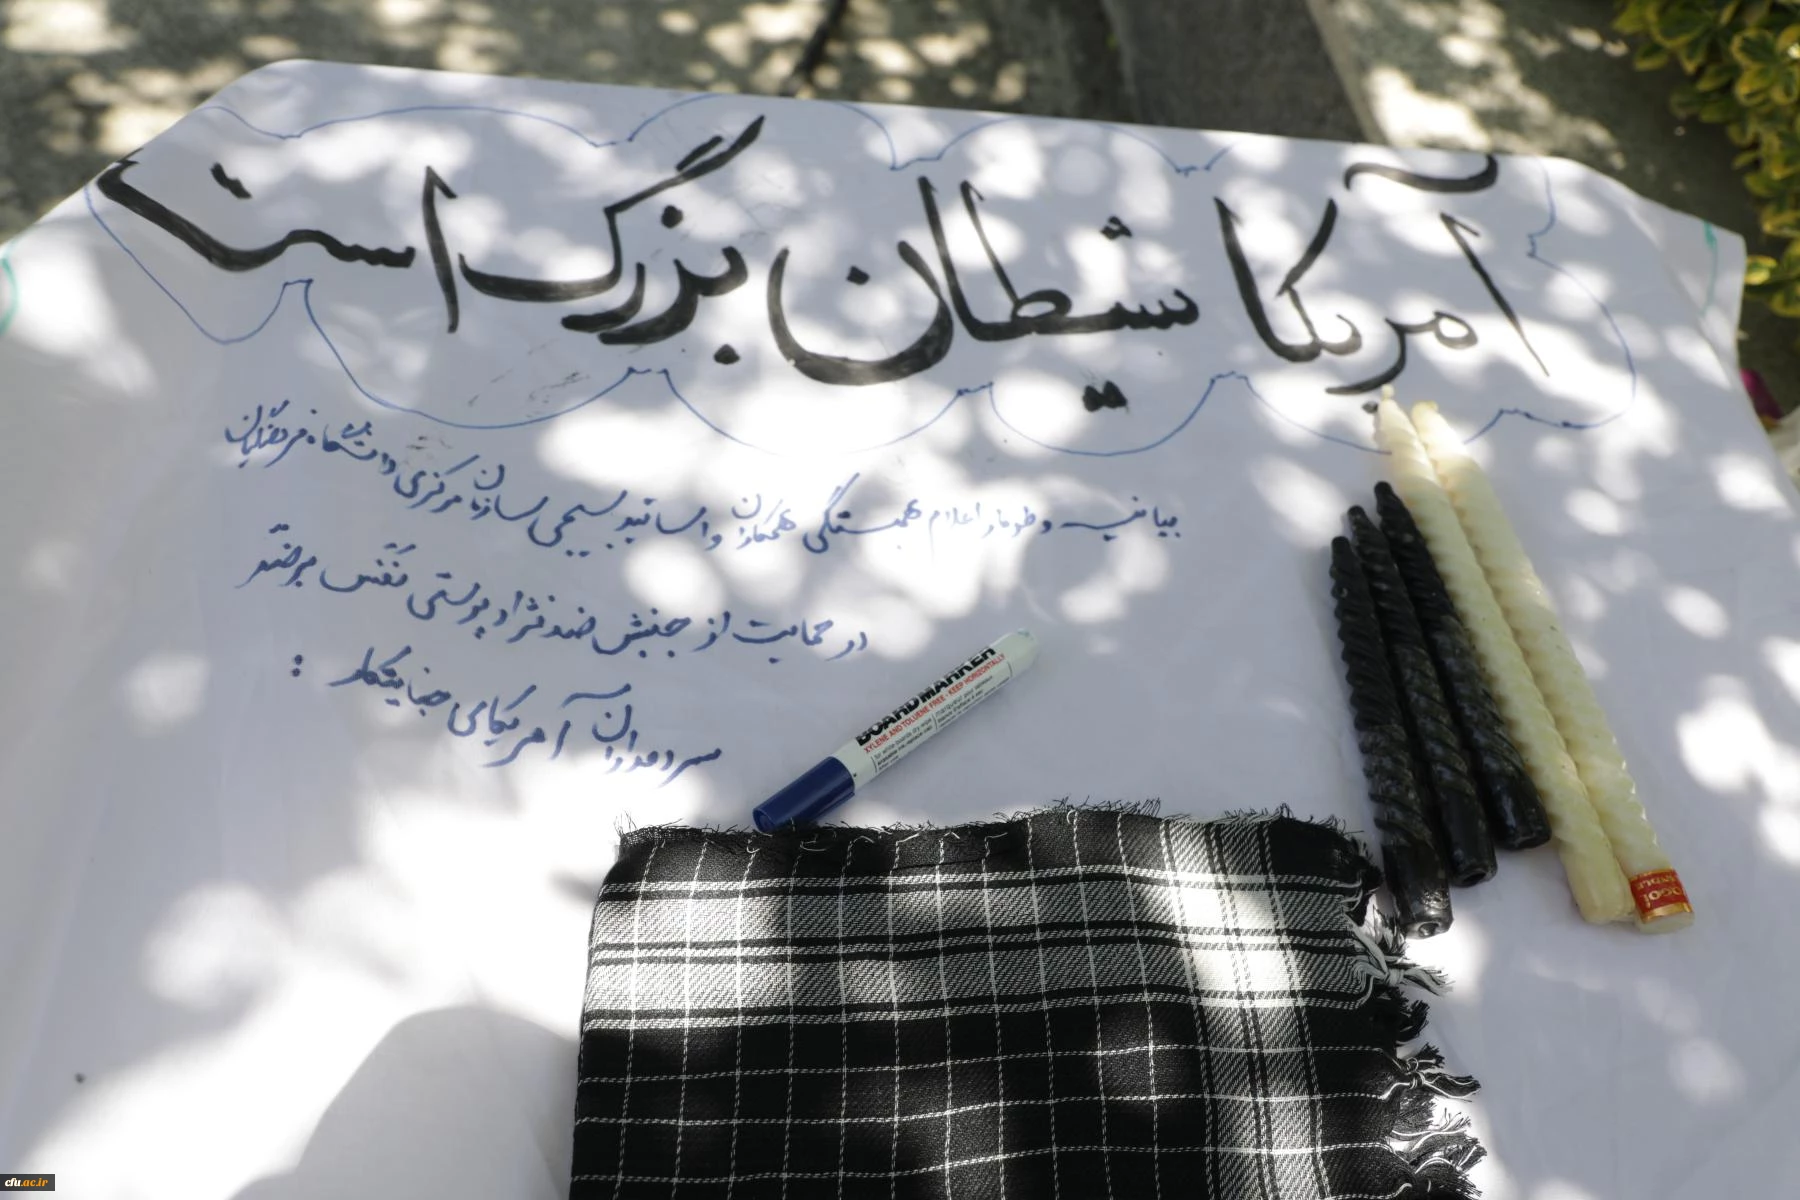 آمریکا شیطان بزرگ است
بیانیه و طومار اعلام همبستگی همکاران و اساتید بسیجی سازمان مرکزی دانشگاه فرهنگیان
در حمایت از جنبش ضد نژاد پرستی نقش بر ضد
سردمداران آمریکای جنایتکار :
BOARD MARKER
XYLENE AND TOLUENE FREE - KEEP HORIZONTALLY
cfu.ac.ir